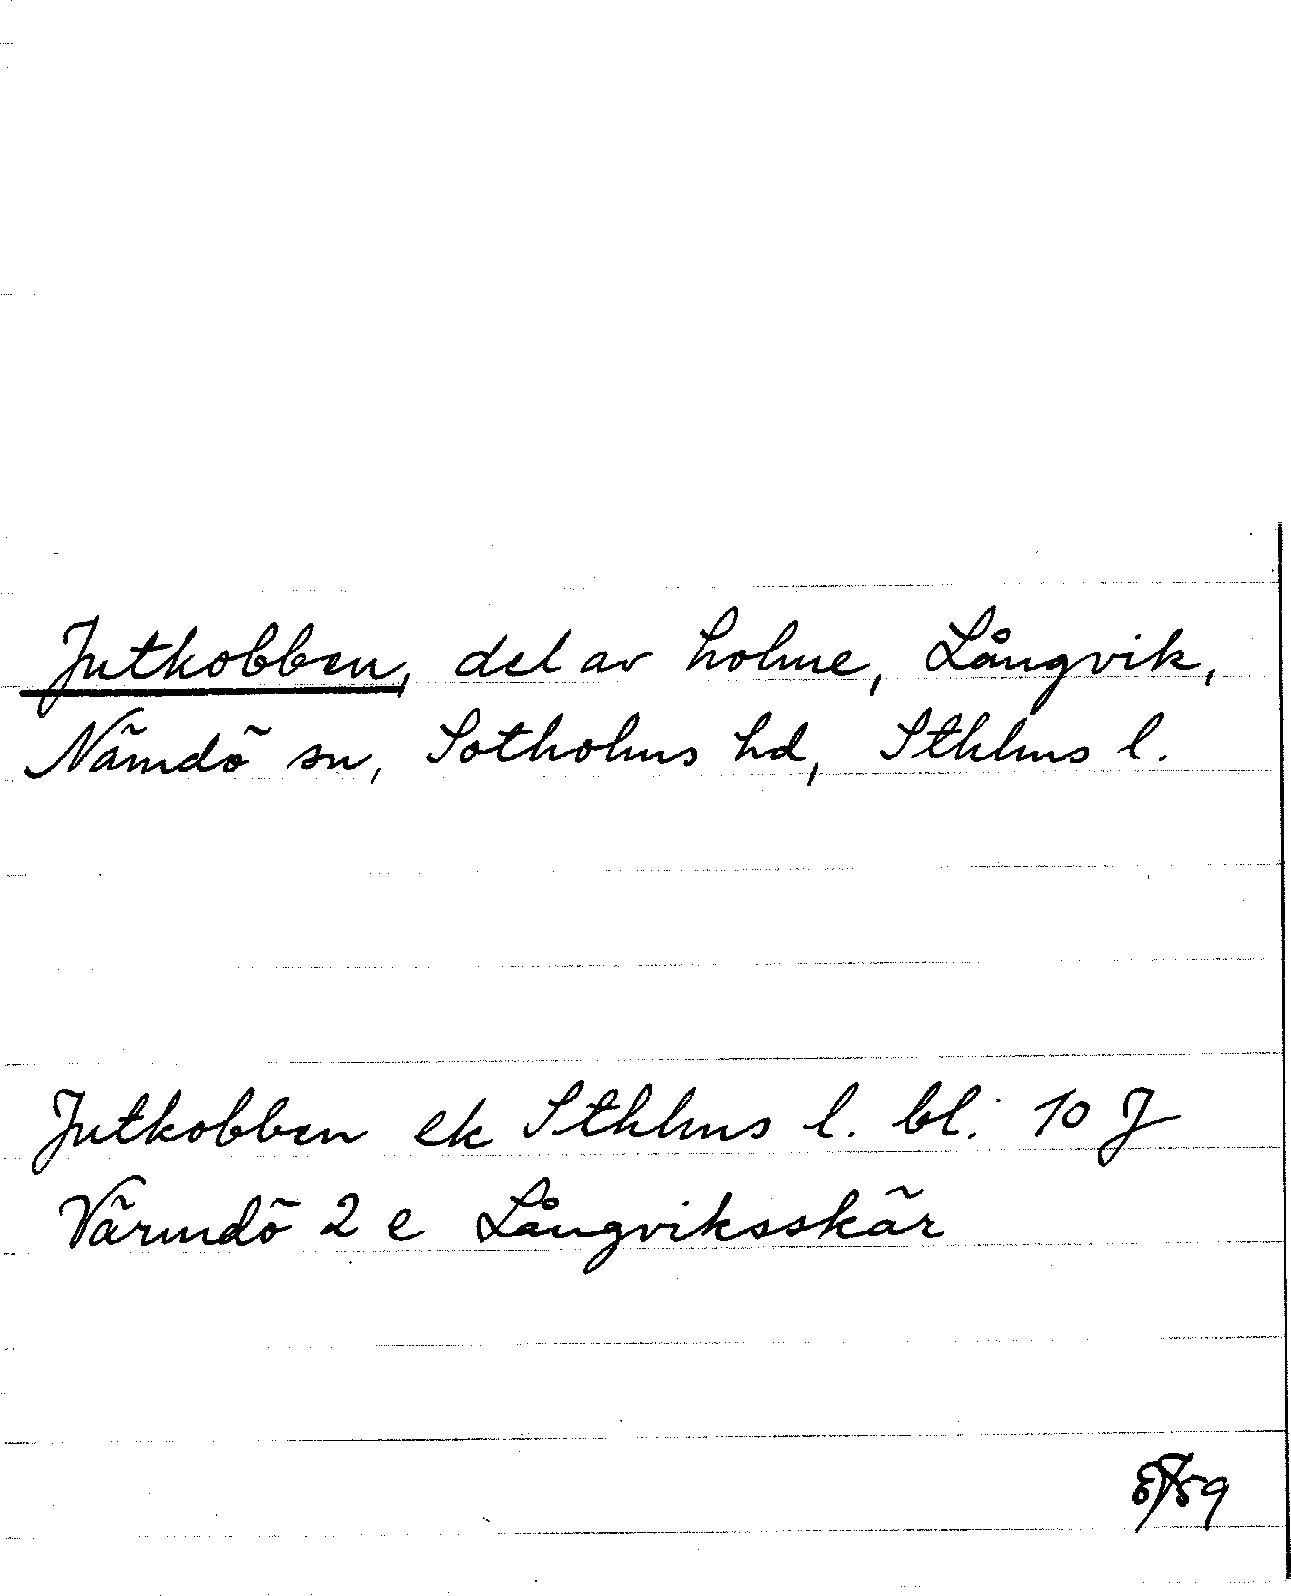 Jutkobben, del av holme, Långvik,
Nämdö sn, Sotholms hd, Sthlms l.
Jutkobben ek Sthlms l. bl. 10 J
Värmdö 2 e Långviksskär